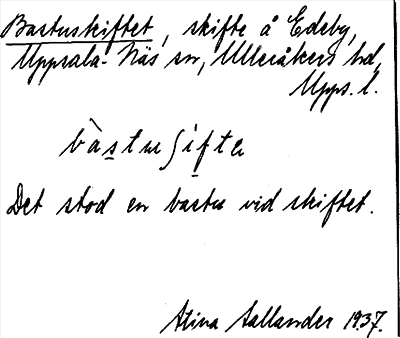 Bastuskiftet, skifte å Edeby,
Uppsala-Näs sn, Ulleråkers hd,
Upps. l.
bàstuʃifte
Det stod en bastu vid skiftet.
Stina Sallander 1937.